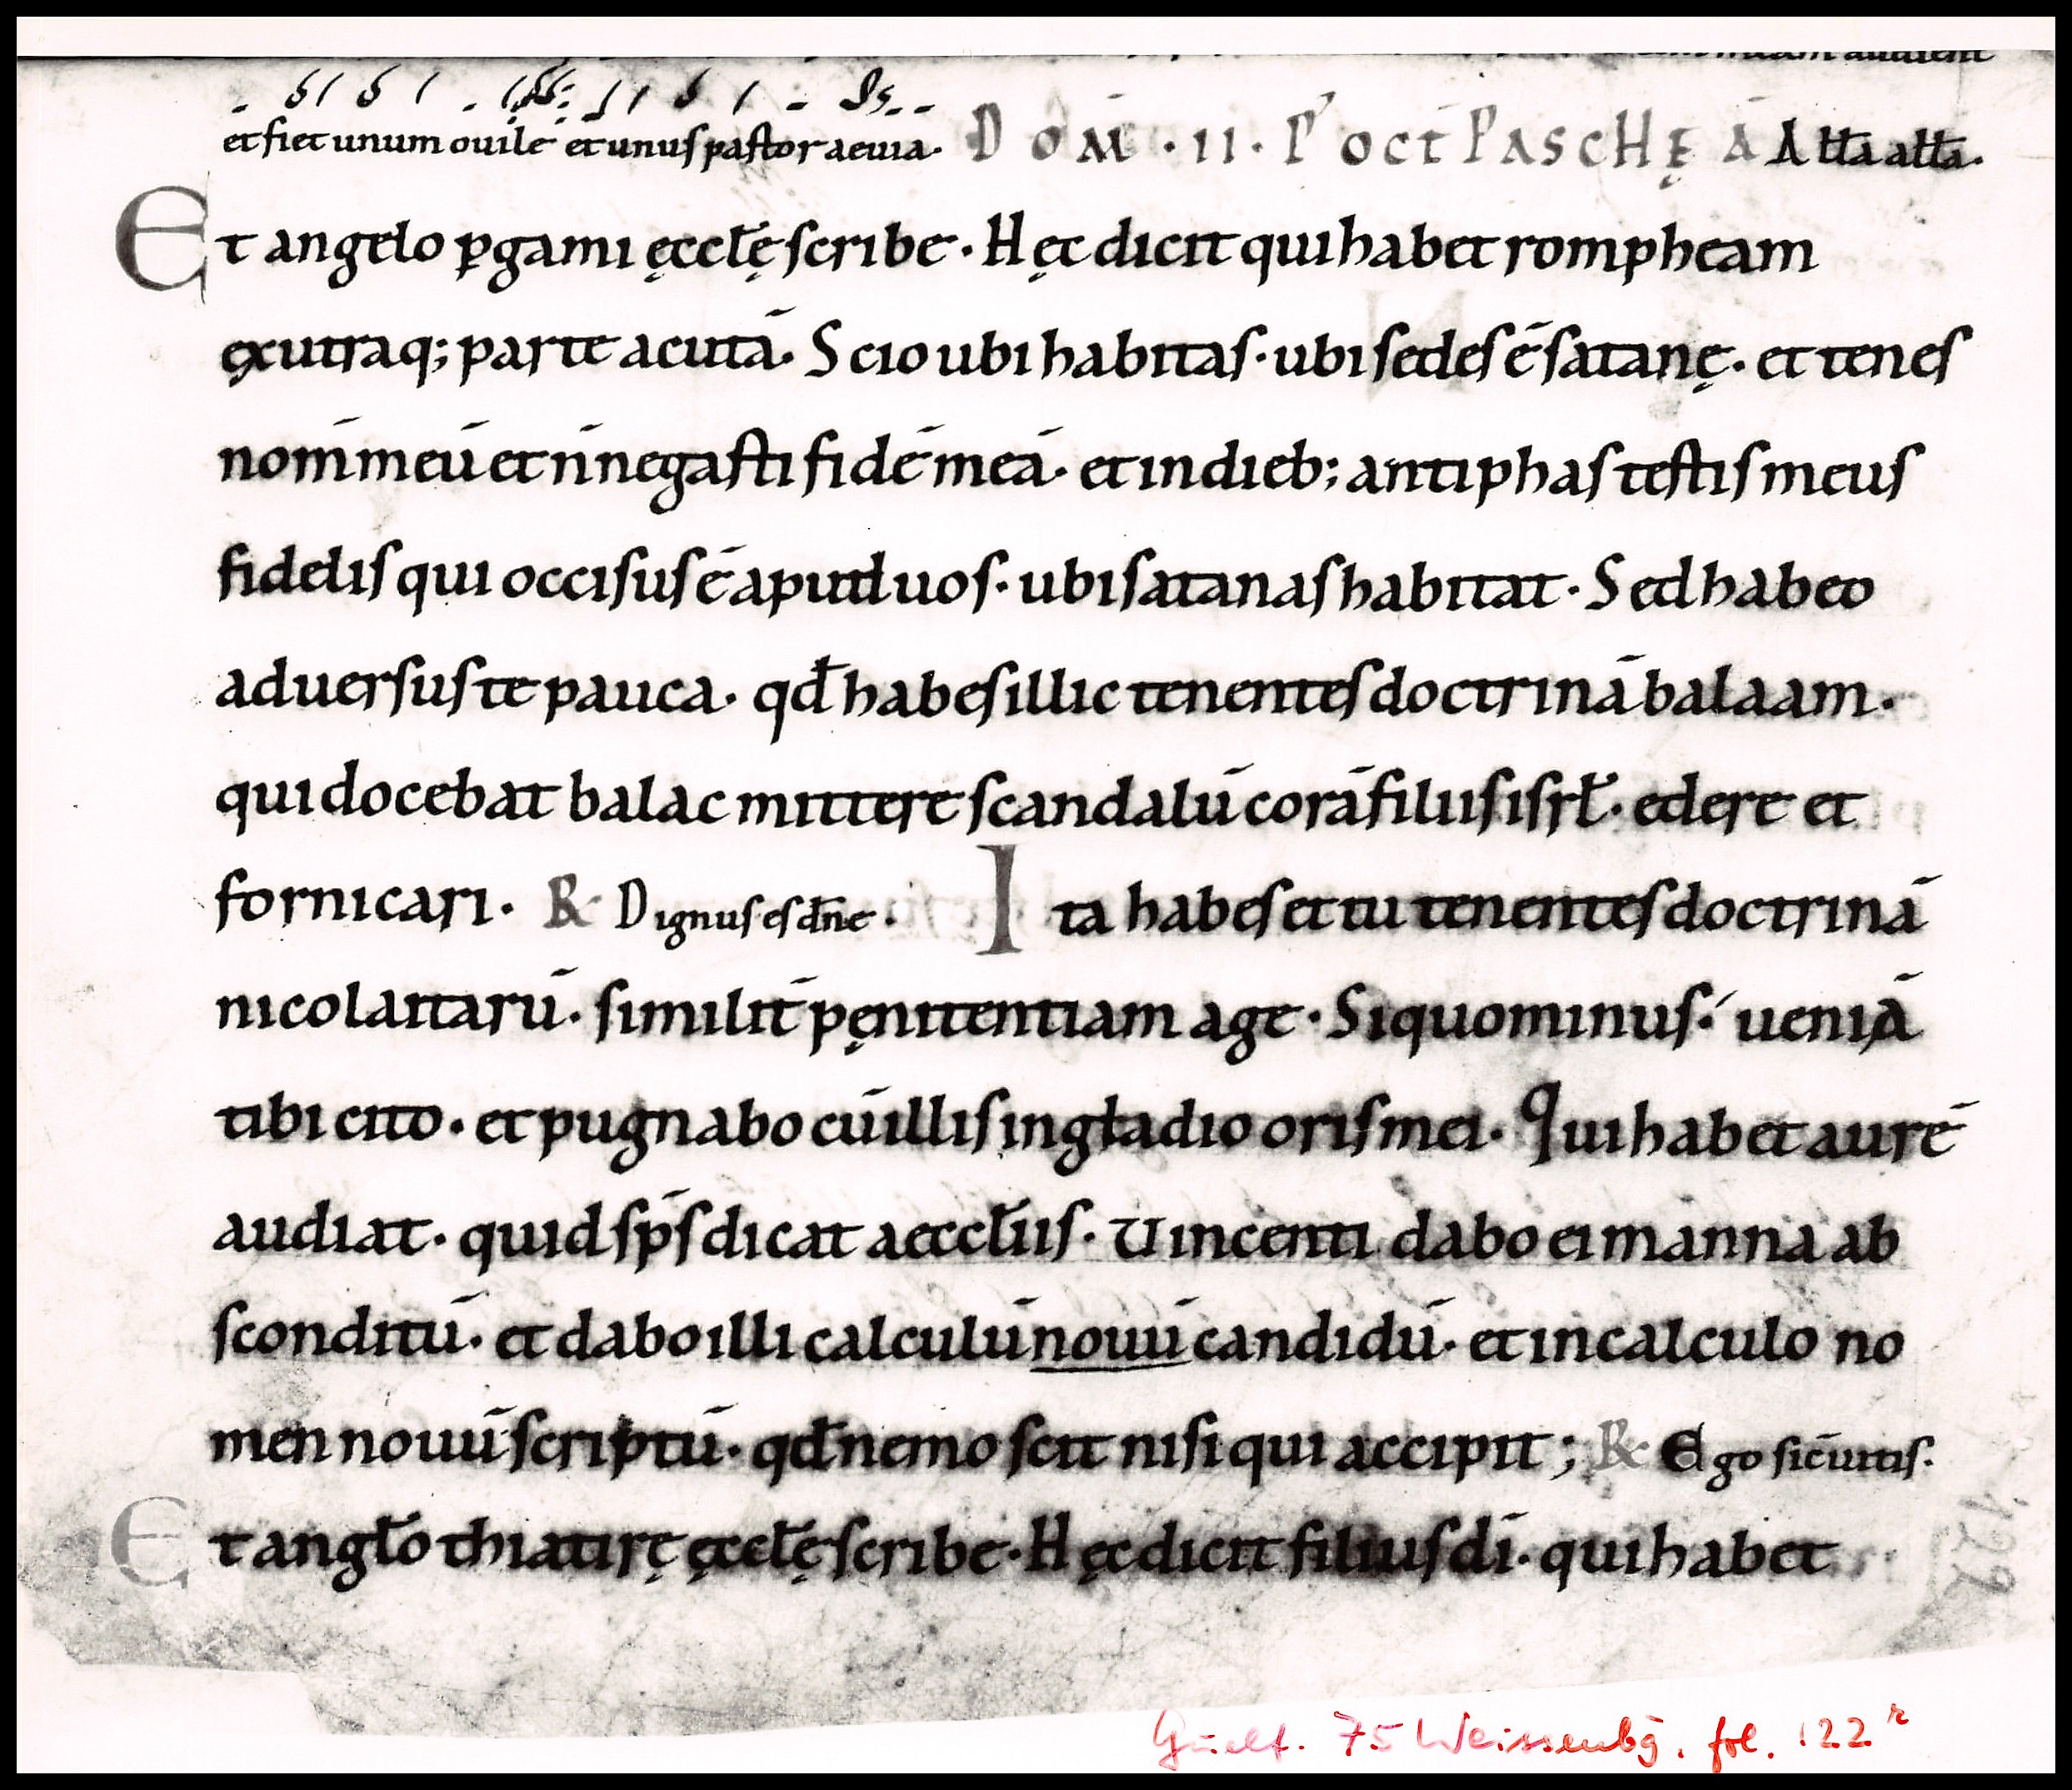 meam audient
et fiet unum ouile et unus pastor aeuia·
DOM̄ · II · P' OCT PASCHĘ Ā Allā allā.
Et angelo ꝑgami ęccłę scribe · Hęc dicit qui habet rompheam
ex utraq; parte acutā· Scio ubi habitas· ubi sedes ē satanę· et tenes
nom̄ meū et n̄ negasti fidē meā· et in dieb; antiphas testis meus
fidelis qui occisus ē apud uos· ubi satanas habitat· Sed habeo
aduersus te pauca· qđ habes illic tenentes doctrinā balaam·
qui docebat balac mittere scandalū corā filiis isrł· edere et
fornicari· R Dignus es dn̄e· Ita habes et tu tenentes doctrinā
nicolaitarū· similit̄ pęnitentiam age· Si quominus· ueniā
tibi cito· et pugnabo cū illis in gladio oris mei· Qui habet aurē
audiat· quid sp̄s dicat aeccłiis· Vincenti dabo ei manna ab
sconditū· et dabo illi calculū nouū candidū· et in calculo no
men nouū scriptū· qđ nemo scit nisi qui accipit; R Ego sic̄ uitis·
Et angło thiatirę ęccłę scribe· Hęc dicit filius dī· qui habet
Guelf. 75 Weissenbg. fol. 122 r